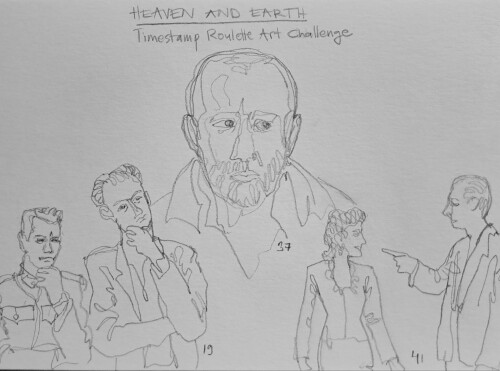 HEAVEN AND EARTH
Timestamp Roulette Art Challenge
37
19
'41